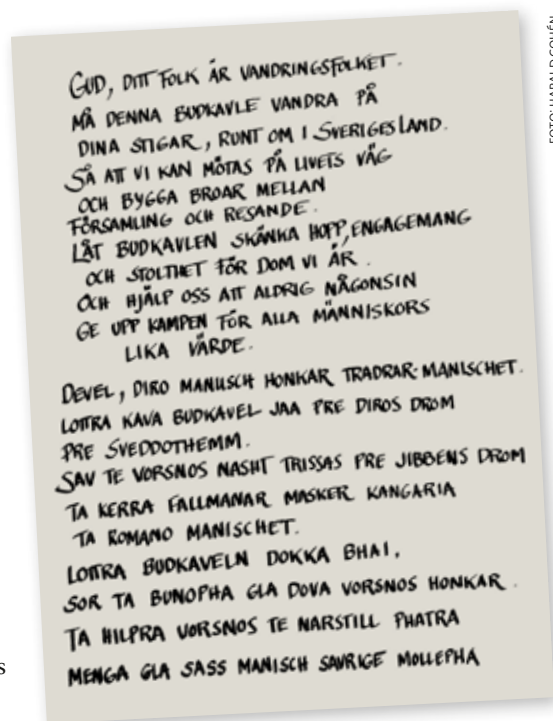 GUD, DITT FOLK ÄR VANDRINGSFOLKET.
MÅ DENNA BUDKAVLE VANDRA PÅ
DINA STIGAR, RUNT OM I SVERIGES LAND.
SÅ ATT VI KAN MÖTAS PÅ LIVETS VÄG
OCH BYGGA BROAR MELLAN
FÖRSAMLING OCH RESANDE.
LÅT BUDKAVLEN SKÄNKA HOPP, ENGAGEMANG
OCH STOLTHET FÖR DOM VI ÄR.
OCH HJÄLP OSS ATT ALDRIG NÅGONSIN
GE UPP KAMPEN FÖR ALLA MÄNNISKORS
LIKA VÄRDE.
DEVEL, DIRO MANUSCH HONKAR TRADRAR-MANISCHET.
LOTTRA KAVA BUDKAVEL JAA PRE DIROS DROM
PRE SVEDDOTHEMM.
SAV TE VORSNOS NASHT TRISSAS PRE JIBBENS DROM
TA KERRA FALLMANAR MASKER KANGARIA
TA ROMANO MANISCHET.
LOTTRA BUDKAVELN DOKKA BHAI,
SOR TA BUNOPHA GLA DOVA VORSNOS HONKAR.
TA HILPRA VORSNOS TE NARSTILL PHATRA
MENGA GLA SASS MANISCH SAVRIGE MOLLEPHA
FOTO: HARALD COHÉN